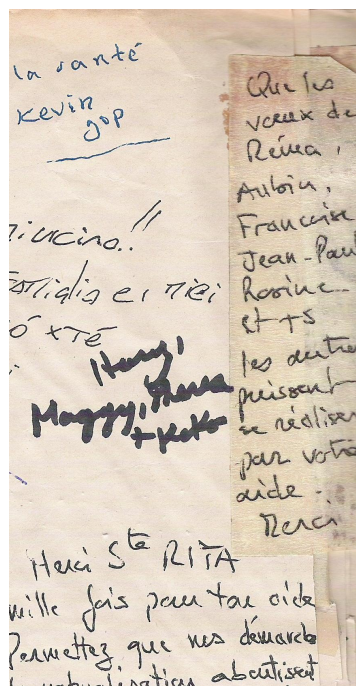 la santé
Kevin
jop
Familia e i miei
Maggy,
Que les
vœux de
Réina,
Aubin,
Francoise
Jean-Paul
Rosine
et ts
les autres
puissent
se réaliser
par votre
aide.
Merci
Merci Ste RITA
mille fois pour ton aide
Permettez que nos démarches
aboutissent